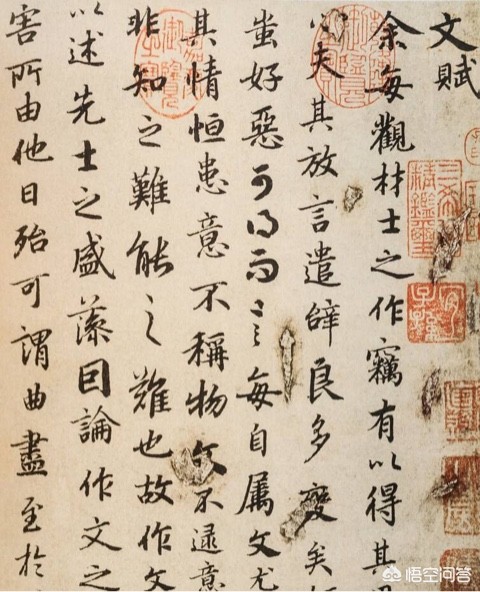 文賦
余每觀材士之作竊有以得其
心夫其放言遣辭良多變矣
蚩好惡可得而言每自屬文尤
其情恒患意不稱物文不逮意
非知之難能之難也故作文
以述先士之盛藻因論作文之
害所由他日殆可謂曲盡至於
三希堂精鑑璽
宜子孫
悟空问答